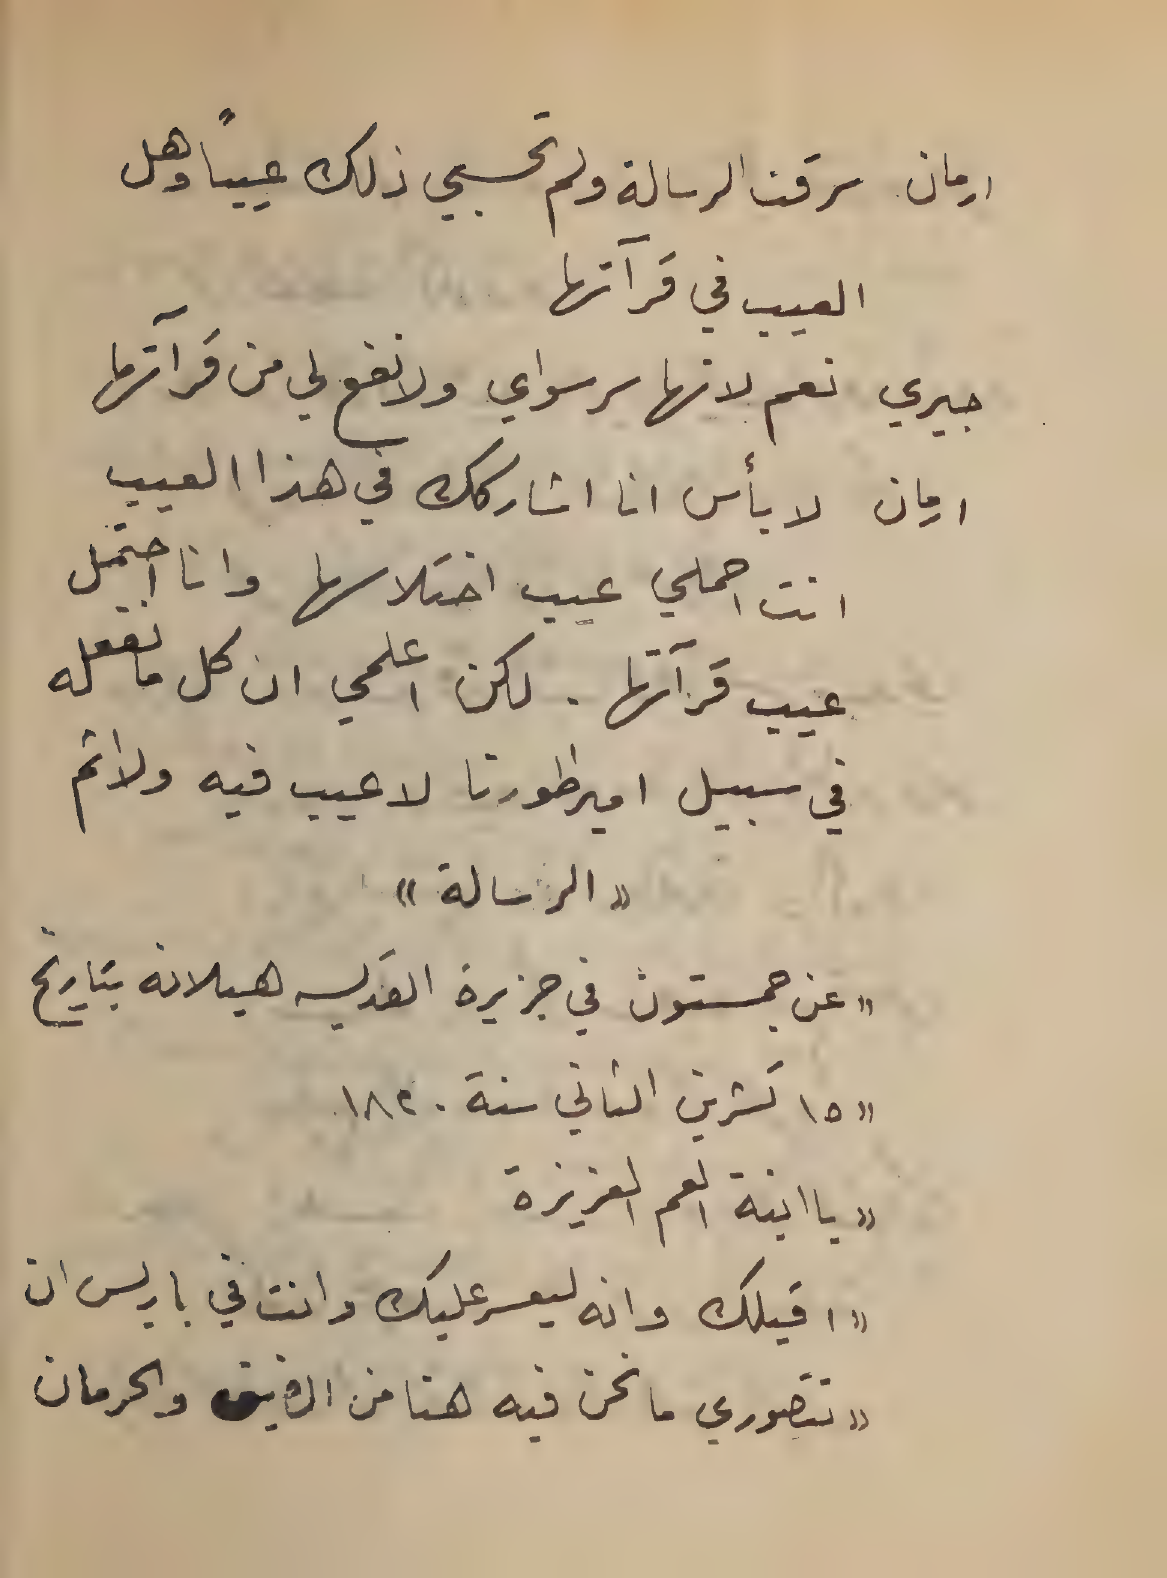 ارمان سرقت الرسالة ولم تحسبي ذلك عيباً وهل
العيب في قرآتها
جيري نعم لانها برسواي ولا نفع لي من قرآتها
ارمان لا بأس انا اشاركك في هذا العيب
انت احملي عيب اختلاسها وانا احتمل
عيب قرآتها . لكن اعلمي ان كل ما نفعله
في سبيل امبرطورنا لا عيب فيه ولا اثم
« الرسالة »
« عن جمستون في جزيرة القديسه هيلانه بتاريخ
« ١٥ تشرين الثاني سنة ١٨٢٠
« يا ابنة العم العزيزة
« اقبلك وانه ليعسر عليك وانت في باريس ان
« تتصوري ما نحن فيه هنا من الضيق والحرمان